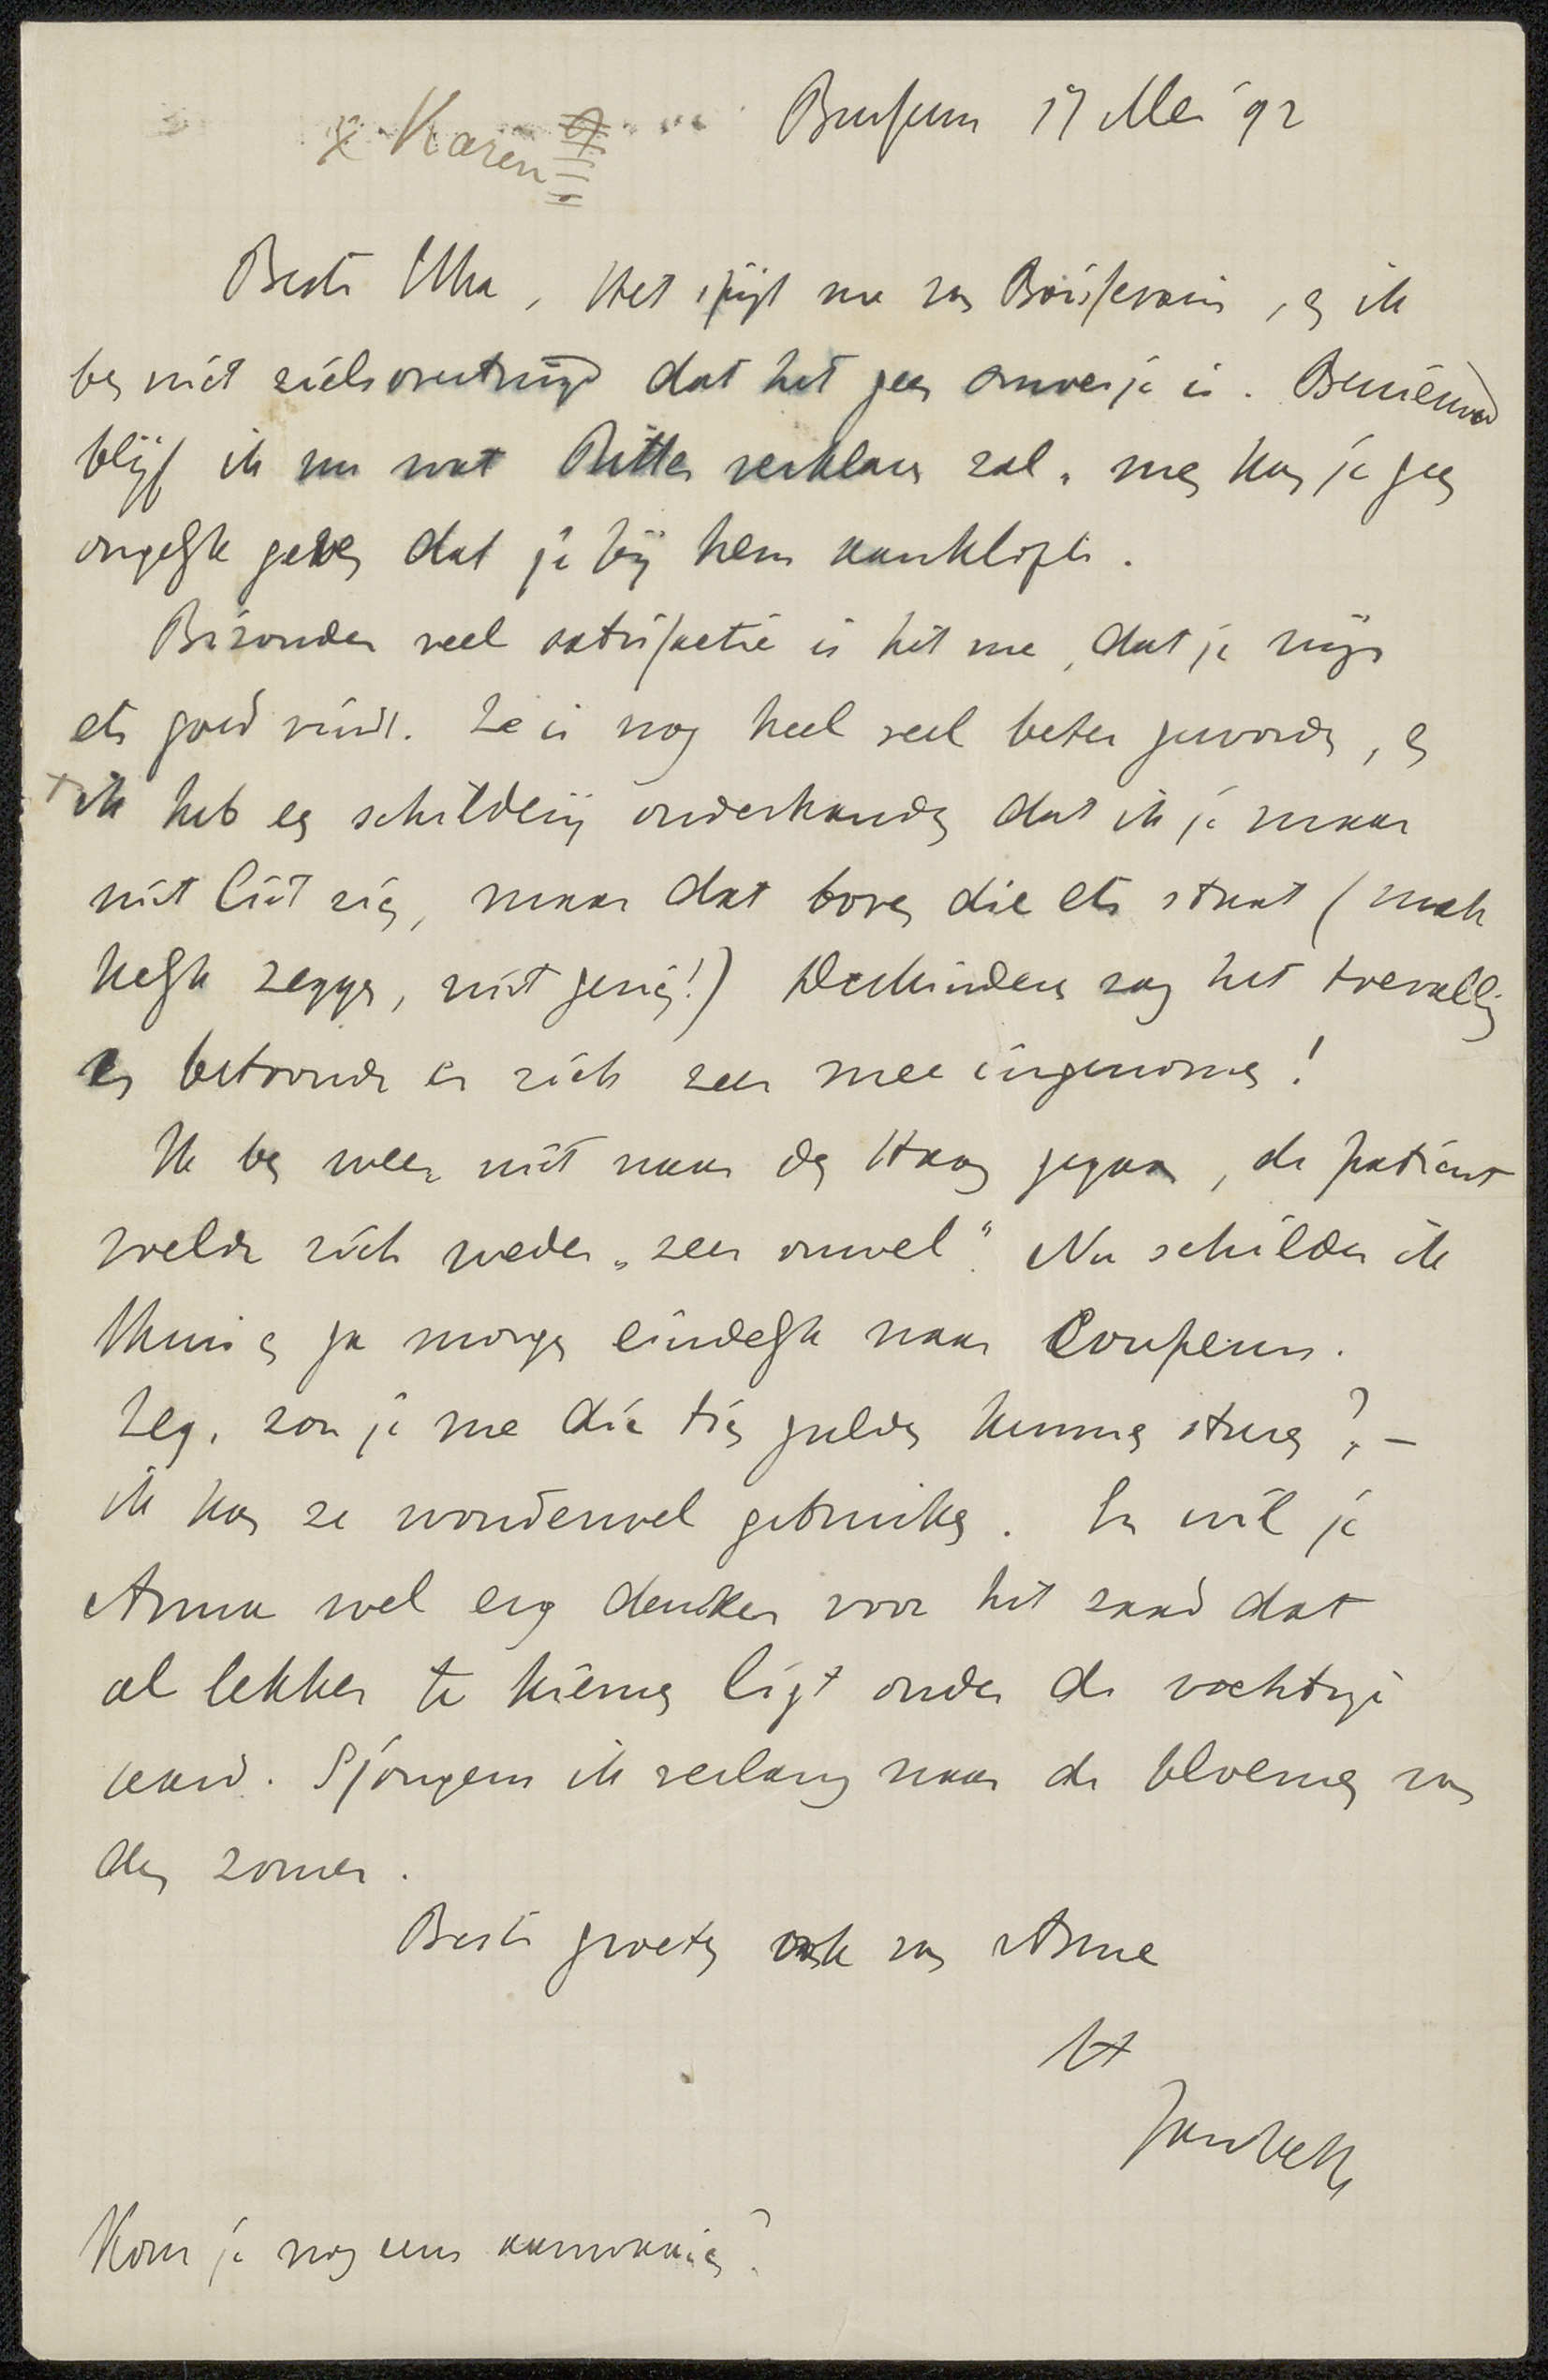 x Karen
Bussum 17 Mei '92
Beste Th, Het spijt me van Boissevain, en ik
ben niet zielsovertuigd dat het geen onwensje is. Benieuwd
blijf ik nu wat Ritter verklaren zal. men kan je geen
ongelijk geven dat je bij hem aanklopte.
Bizonder veel satisfactie is het me, dat je mijn
ets goed vindt. Ze is nog heel veel beter geworden, en
ik heb een schilderij onderhanden dat ik je maar
niet liet zien, maar dat boven die ets staat (makkelijk
zeggen, niet gezien!) Derkinderen zag het toevallig
en betoonde er zich zeer mee ingenomen!
Ik ben weer niet naar den Haag gegaan, de patient
voelde zich weder „zeer onwel". Nu schilder ik
thuis en ga morgen eindelijk naar Couperus.
Zeg, zou je me die tien gulden kunnen sturen? –
ik kan ze wonderwel gebruiken. En wil je
Anna wel erg danken voor het zaad dat
al lekker te kiemen ligt onder de vochtige
aard. Sjongens ik verlang naar de bloemen van
den zomer.
Beste groeten ook van Anne
tt
JanVeth
Kom je nog eens aanwaaien?